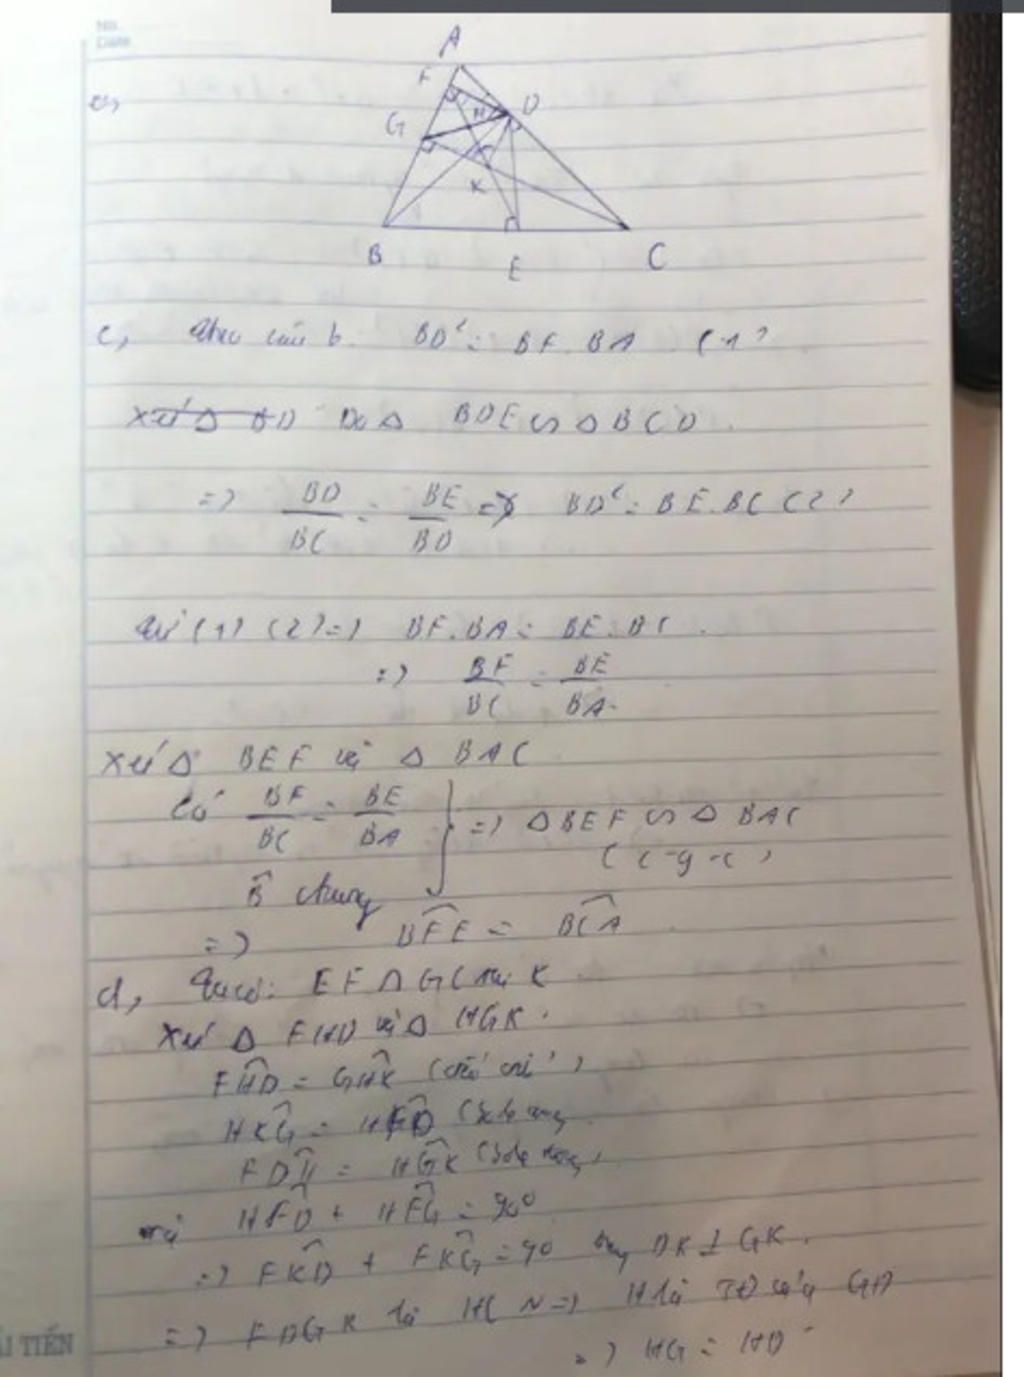 No.
Date
A
F
D
G
H
K
B
E
C
c, Theo câu b. BD² = BF.BA (1)
Xét Δ BD Do Δ BDE ∽ Δ BCD.
=> BD/BC = BE/BD => BD² = BE.BC (2)
Từ (1) (2) => BF.BA = BE.BC.
=> BF/BC = BE/BA.
Xét Δ BEF và Δ BAC
Có BF/BC = BE/BA } => Δ BEF ∽ Δ BAC
(c-g-c)
B̂ chung
=> BFE = BCA
d, Ta có: EF ∩ GC tại K
Xét Δ FHD và Δ HGK.
FHD = GHK (đối đỉnh)
HKG = HFD (So le trong
FDH = HGK (So le trong)
mà HFD + HFG = 90°
=> FKD + FKG = 90 hay DK ⊥ GK.
=> FDGK là HCN => H là TĐ của GD
=> HG = HD
ẢI TIẾN